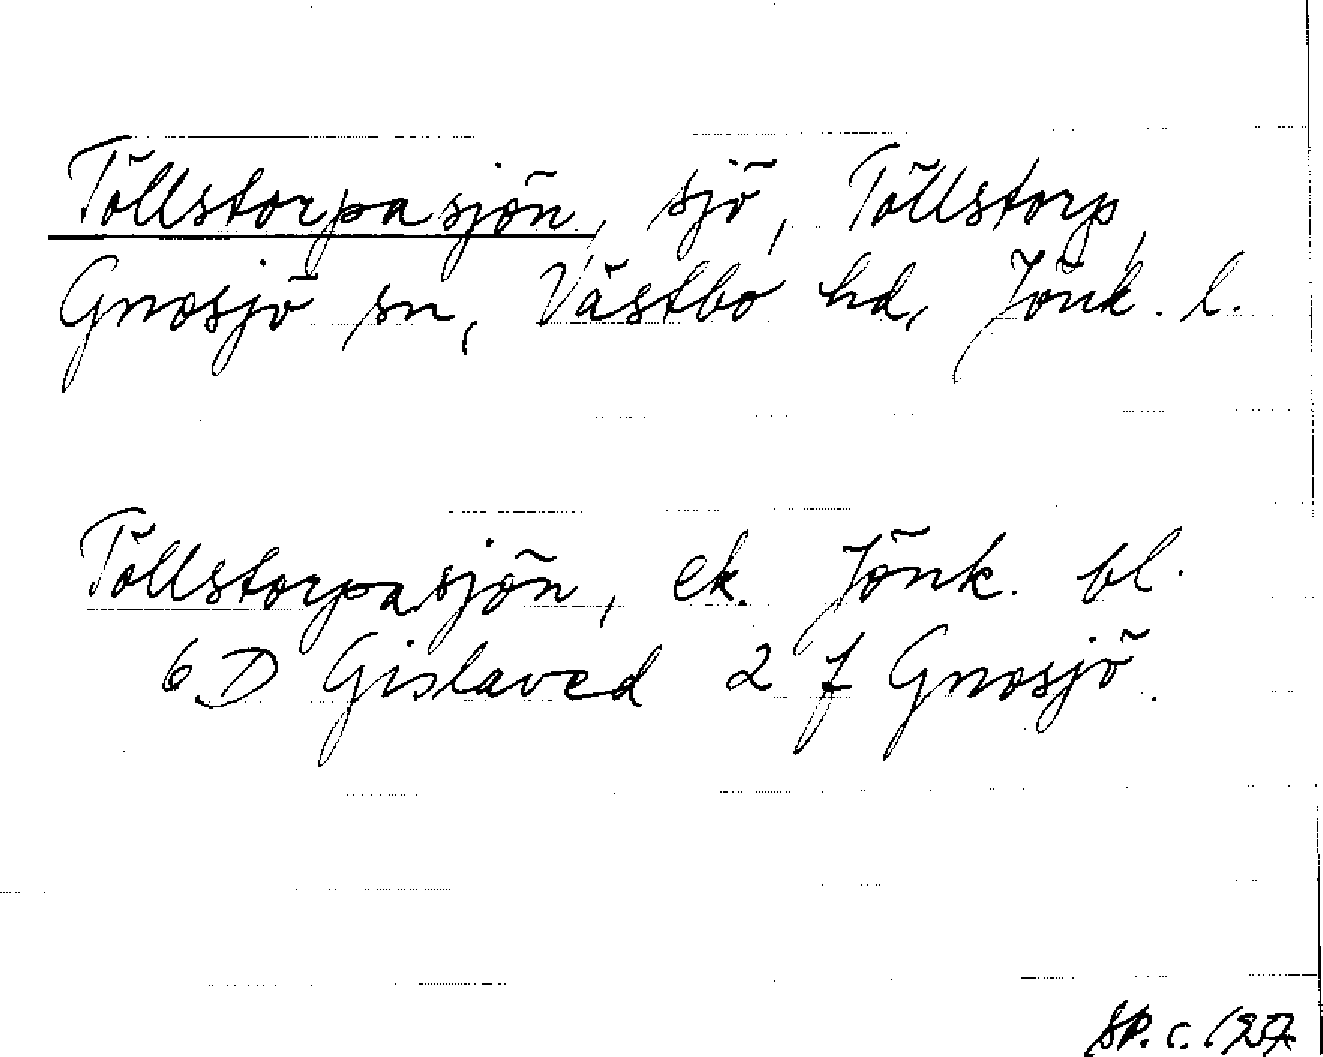 Töllstorpasjön, sjö, Töllstorp,
Gnosjö sn, Västbo hd, Jönk. l.
Töllstorpasjön, ek. Jönk. bl.
6 D Gislaved 2 f Gnosjö.